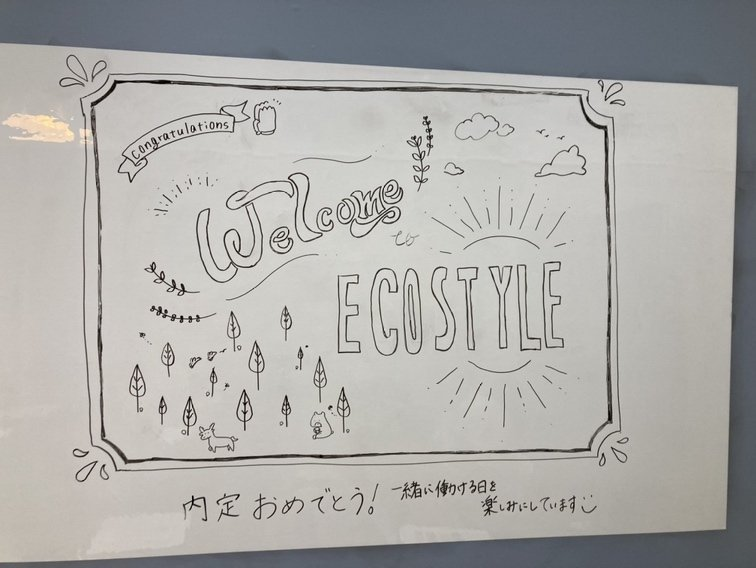 congratulations
Welcome
to
ECOSTYLE
内定おめでとう!
一緒に働ける日を
楽しみにしています